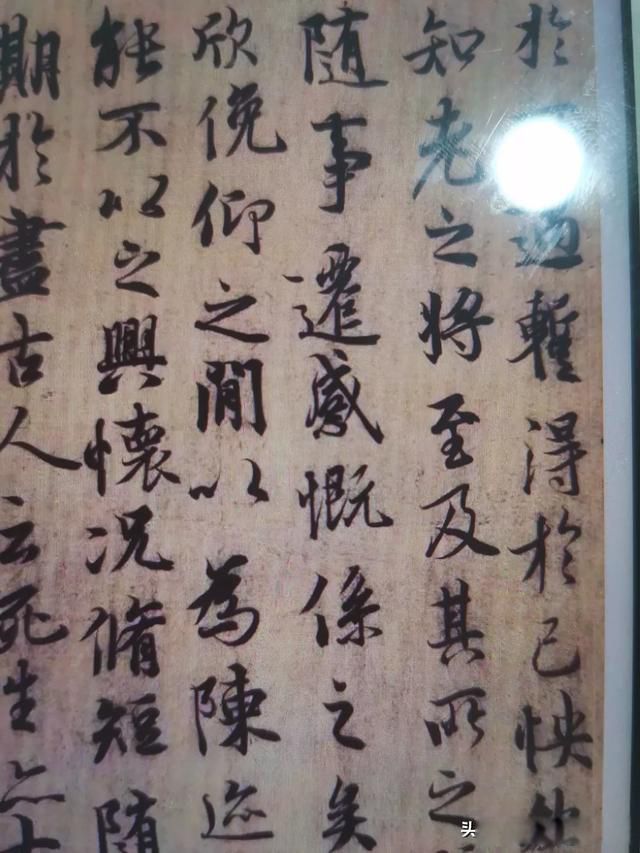 於所遇暫得於己快然
知老之將至及其所之
隨事遷感慨係之矣
欣俛仰之間以為陳迹
能不以之興懷況脩短隨
期於盡古人云死生亦大
头